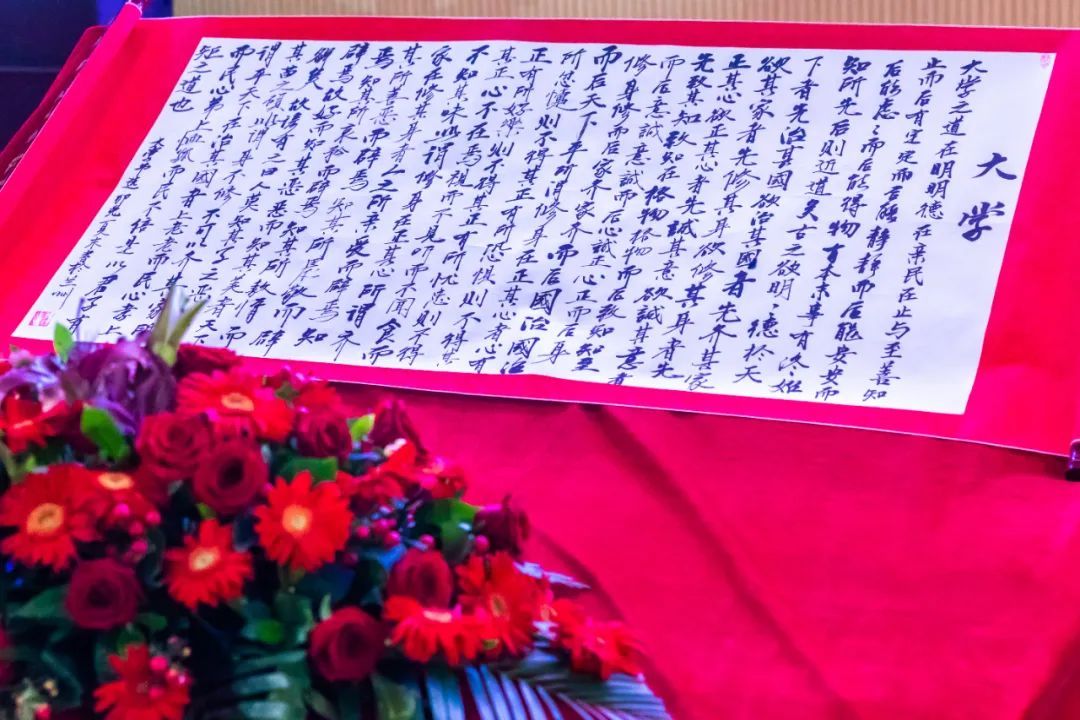 大学
大学之道在明明德在亲民在止与至善知
止而后有定定而后能静静而后能安安而
后能虑之而后能得物有本末事有终始
知所先后则近道矣古之欲明德於天
下者先治其國欲治其國者先齐其家
欲其家者先修其身欲修其身者先
正其心欲正其心者先誠其意欲誠其意者
先致其知致知在格物格物而后致知知至
而后意誠意誠而后心誠心正而后身
修身修而后家齐家齐而后國治國治
而后天下平所谓修身在正其心者心有
所忿懥则不得其正有所恐惧则不得其
正有所好樂则不得其正有所忧患则不得
其正心不在焉视而不见听而不闻食而
不知其味此谓修身在正其心所谓齐
家在修其身者人之所亲爱而辟焉知
其所善恶而辟焉知其所畏敬而辟
焉知其所哀矜而辟焉知其所敖惰而
辟焉故好而知其恶恶而知其美者天
其苗之硕此谓身不修不可以齐其家
谓平天下在治其國者上老老而民
而民不倍是以君子
矩之道也